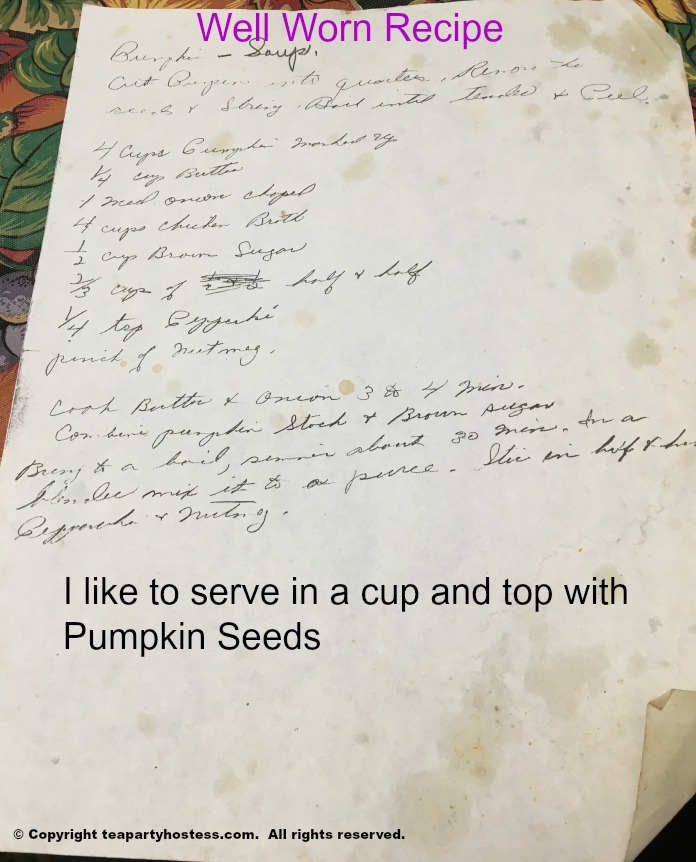 Well Worn Recipe
Pumpkin - Soup.
Cut Pumpkin into quarters. Remove the
seeds & String. Boil until tender & Peel.
4 Cups Pumpkin mashed up
1/4 cup Butter
1 Med onion choped
4 cups chicken Broth
1/2 cup Brown Sugar
2/3 cups of half & half
1/4 tsp
pinch of Nutmeg.
Cook Butter & Onion 3 to 4 min.
Combine pumpkin Stock & Brown sugar
Bring to a boil, simmer about 30 min. In a
blender mix it to a puree. Stir in half &
& Nutmeg.
I like to serve in a cup and top with
Pumpkin Seeds
© Copyright teapartyhostess.com. All rights reserved.